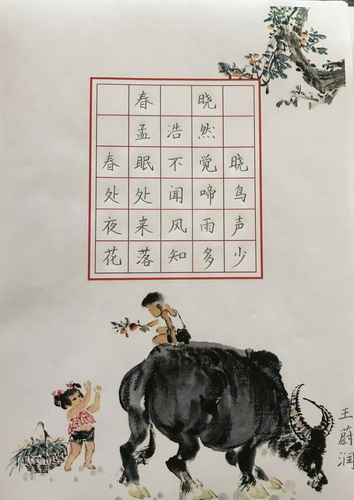 春晓
孟浩然
春眠不觉晓
处处闻啼鸟
夜来风雨声
花落知多少
王蔚润